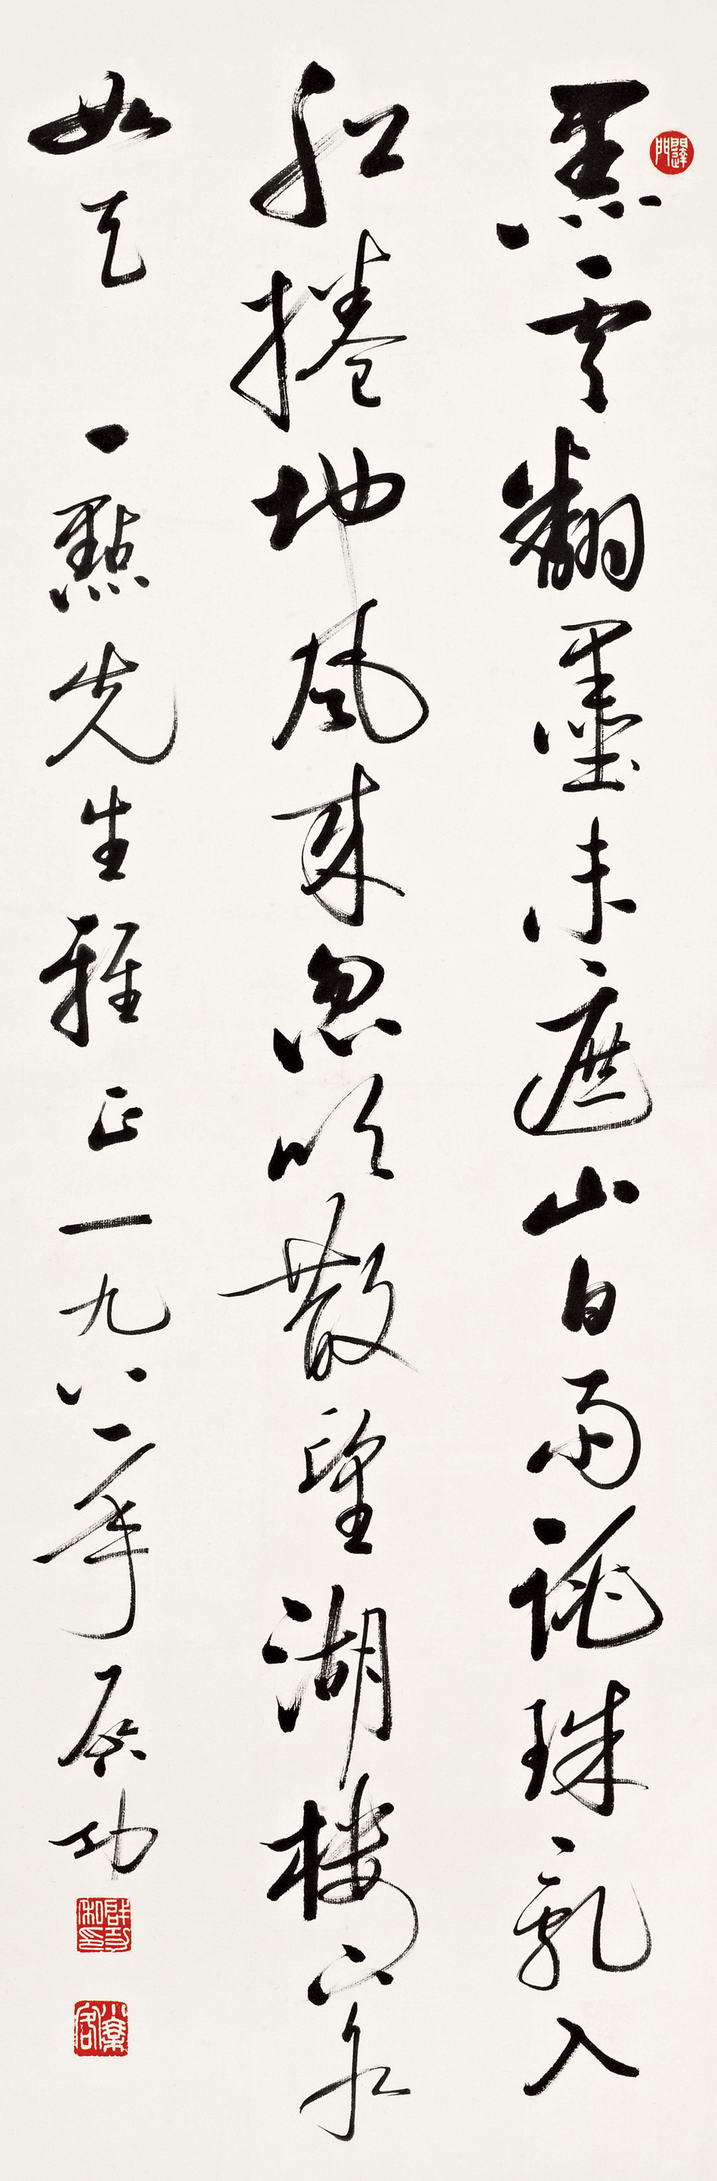 黑雲翻墨未遮山白雨跳珠亂入
舡捲地風來忽吹散望湖樓下水
如天 一點先生雅正一九八二年启功